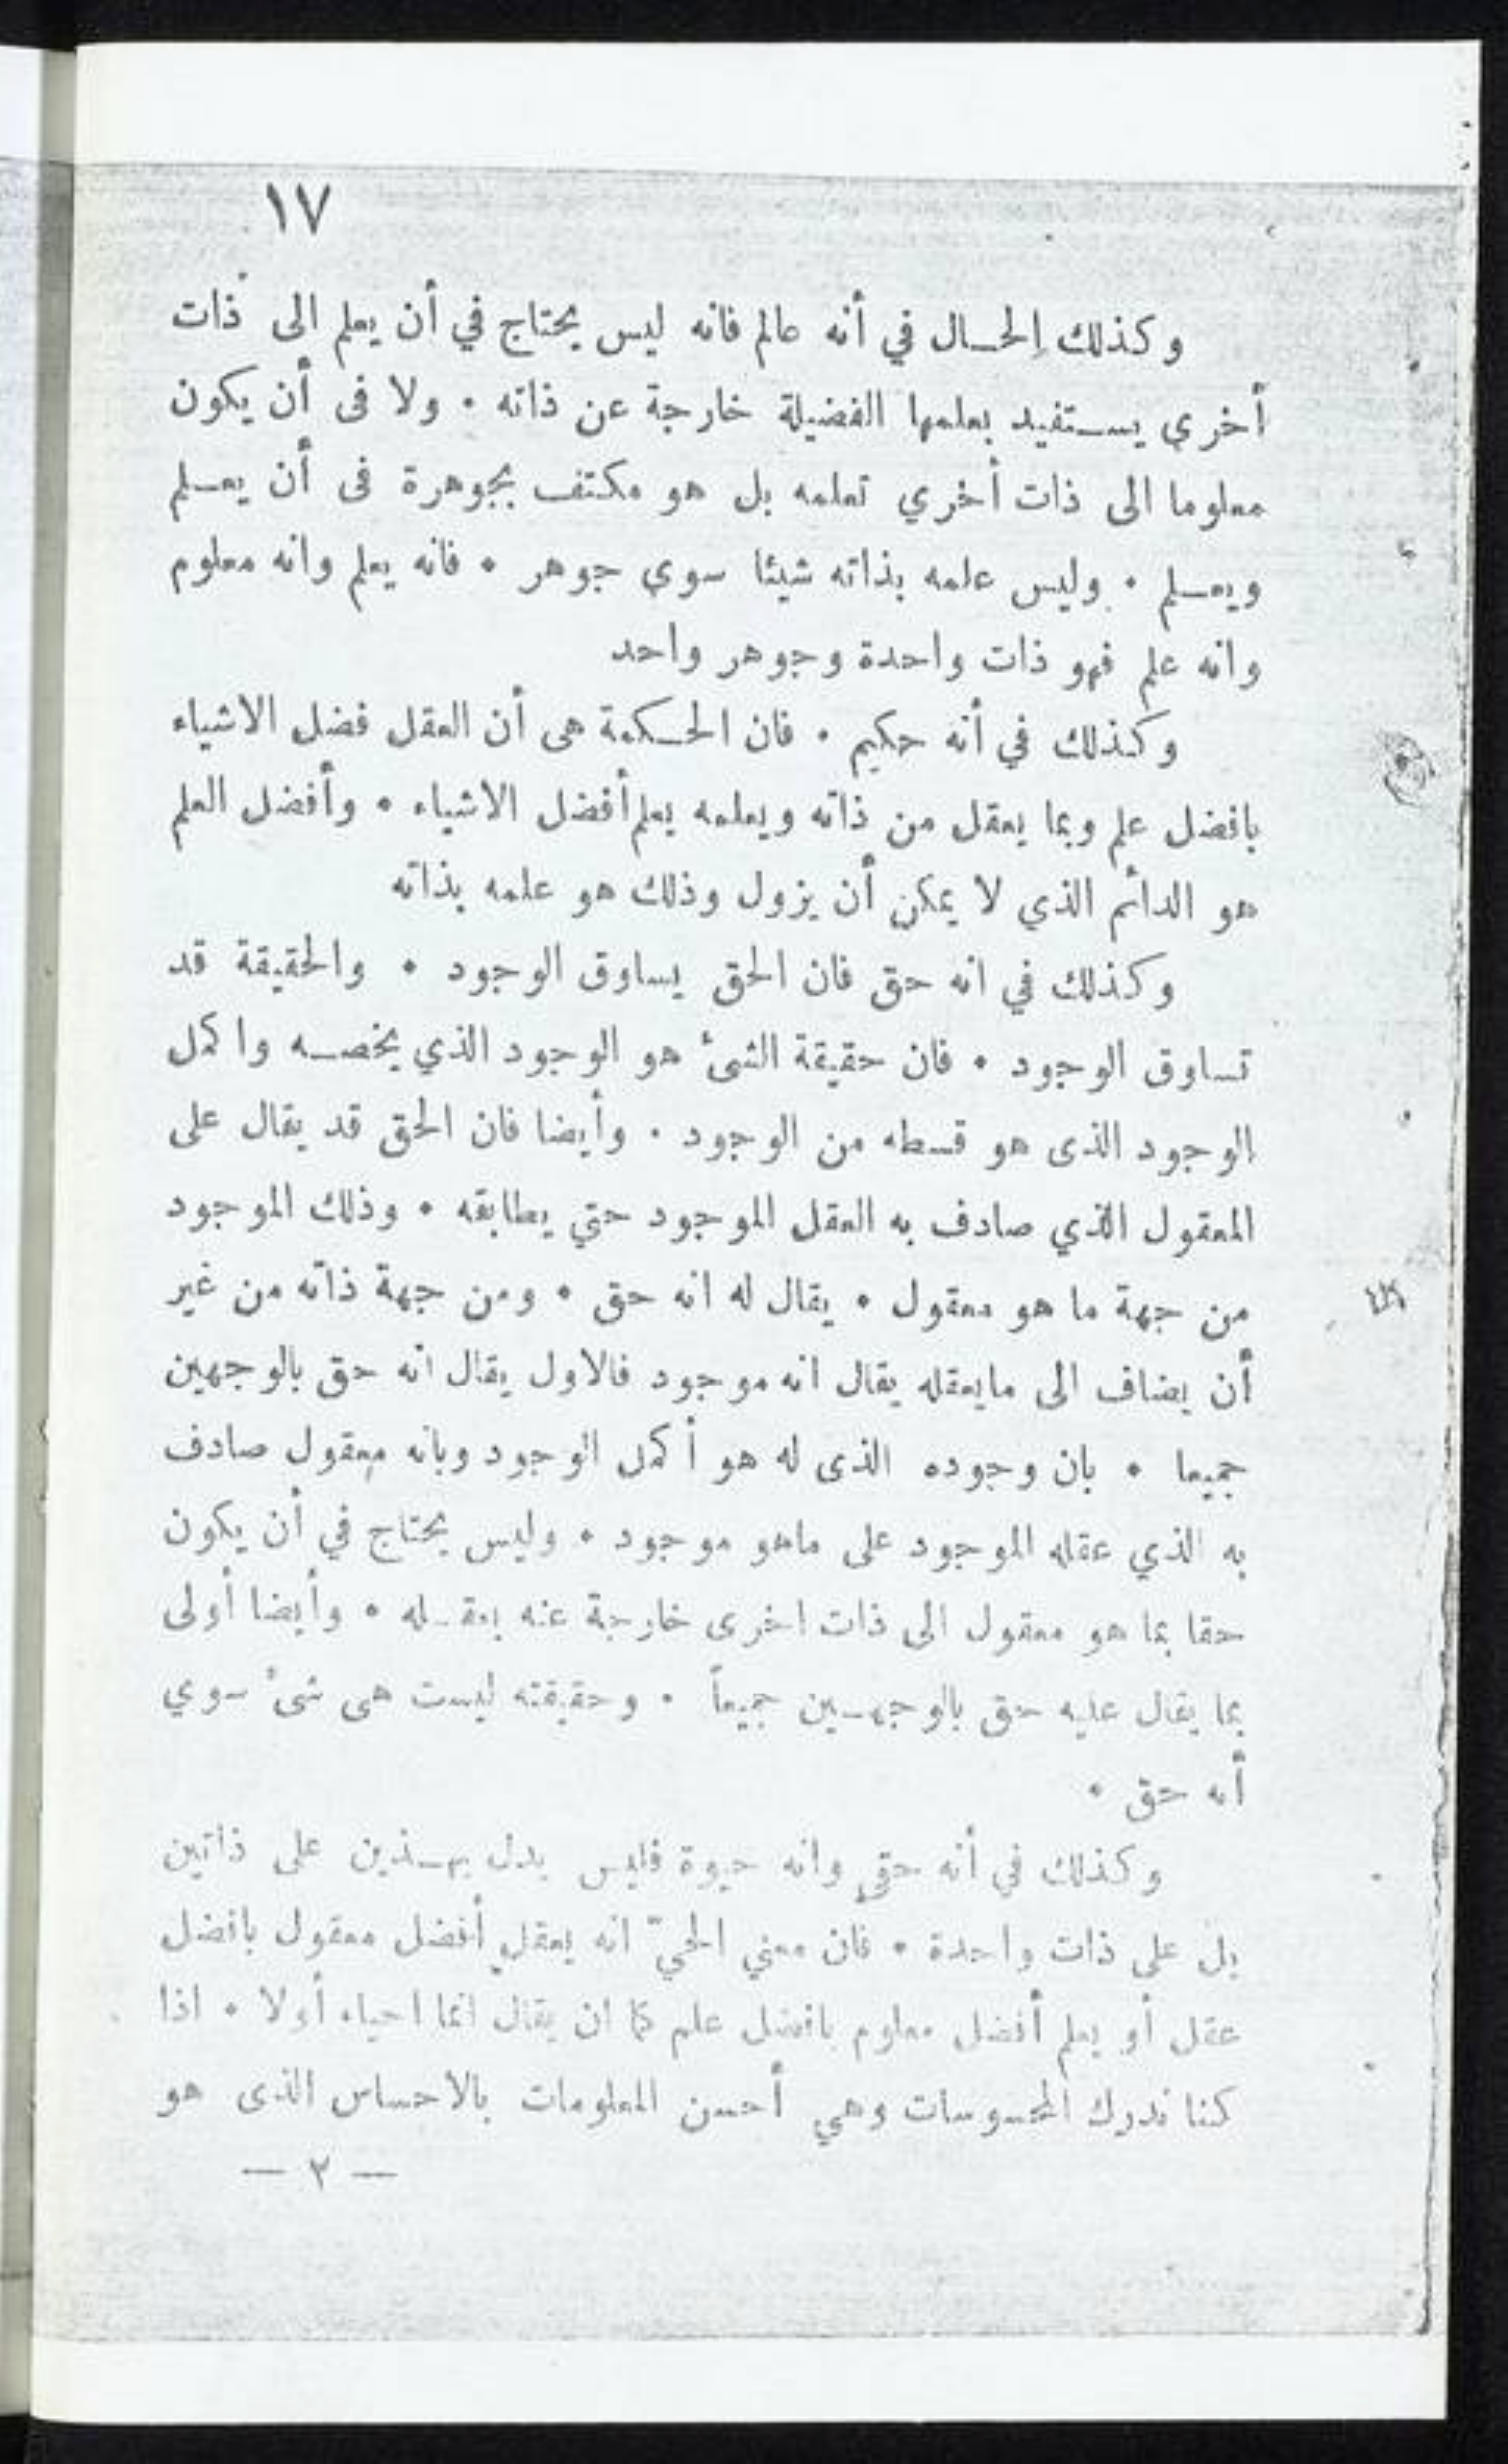 ١٧
وكذلك الحال في أنه عالم فانه ليس يحتاج في أن يعلم الى ذات
أخري يستفيد بعلمها الفضيلة خارجة عن ذاته • ولا فى أن يكون
معلوما الى ذات أخري تعلمه بل هو مكتف بجوهرة فى أن يعلم
ويعلم • وليس علمه بذاته شيئا سوى جوهر • فانه يعلم وانه معلوم
وانه علم فهو ذات واحدة وجوهر واحد
وكذلك في أنه حكيم • فان الحكمة هى أن العقل فضل الاشياء
بافضل علم وبما يعقل من ذاته ويعلمه يعلم أفضل الاشياء • وأفضل العلم
هو الدائم الذي لا يمكن أن يزول وذلك هو علمه بذاته
وكذلك في انه حق فان الحق يساوق الوجود • والحقيقة قد
تساوق الوجود • فان حقيقة الشئ هو الوجود الذي يخصه واكمل
الوجود الذى هو قسطه من الوجود • وأيضا فان الحق قد يقال على
المعقول الذي صادف به العقل الموجود حتي يطابقه • وذلك الموجود
من جهة ما هو معقول • يقال له انه حق • ومن جهة ذاته من غير
أن يضاف الى مايعقله يقال انه موجود فالاول يقال انه حق بالوجهين
جميعا • بان وجوده الذى له هو أكمل الوجود وبانه معقول صادف
به الذي عقله الموجود على ماهو موجود • وليس يحتاج في أن يكون
حقا بما هو معقول الى ذات اخرى خارجة عنه يعقله • وأيضا أولى
بما يقال عليه حق بالوجهين جميعاً • وحقيقته ليست هى شئ سوي
أنه حق •
وكذلك في أنه حقي وانه حيوة فليس يدل بهذين على ذاتين
بل على ذات واحدة • فان معني الحيّ انه يعقل أفضل معقول بافضل
عقل أو يعلم أفضل معلوم بافضل علم كما ان يقال انما احياء أولا • اذا
كنا ندرك المحسوسات وهي أحسن المعلومات بالاحساس الذى هو
— ٢ —